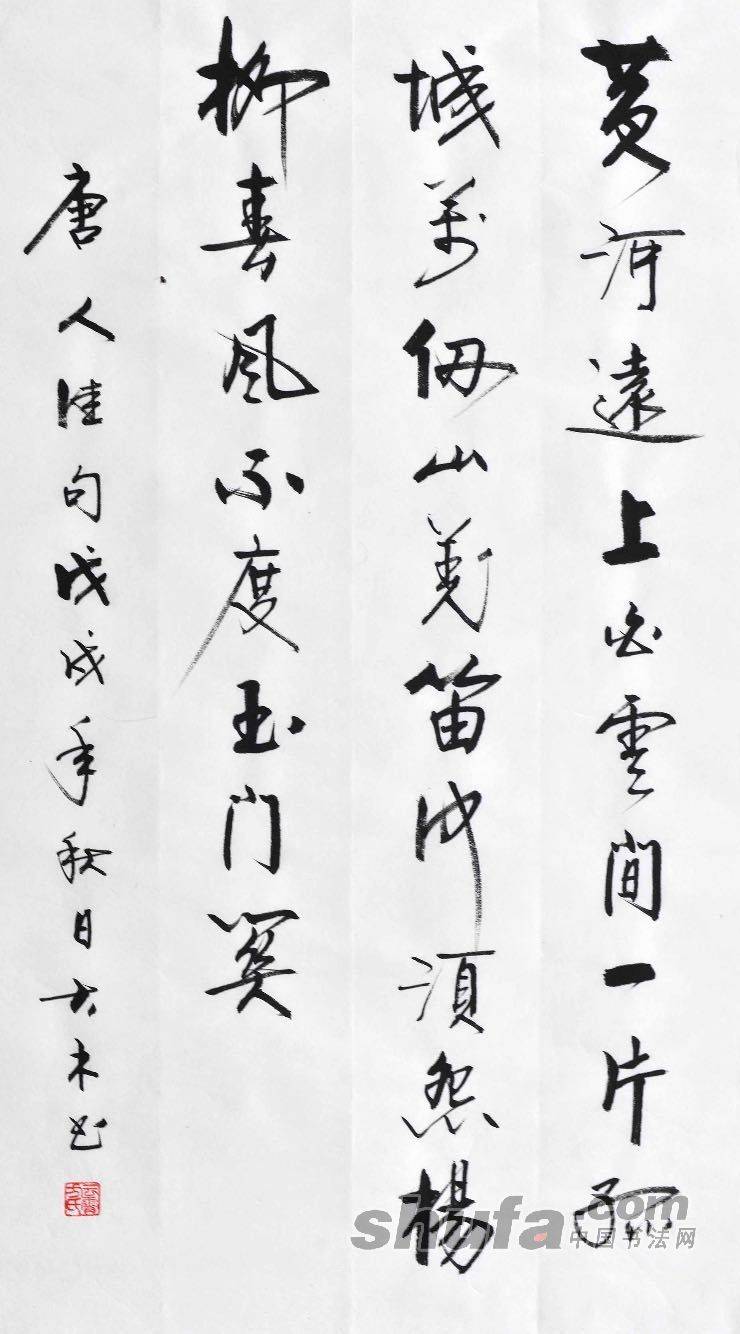 黄河遠上白雲間一片孤
城萬仞山羌笛何須怨楊
柳春風不度玉门関
唐人佳句戊戌年秋日大木书
shufa.com
中国书法网